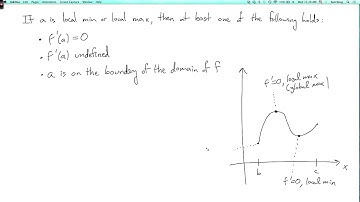 If a is local min or local max, then at least one of the following holds:
• f'(a) = 0
• f'(a) undefined
• a is on the boundary of the domain of f
f'=0, local max
(global max)
b
c
x
f'=0, local min